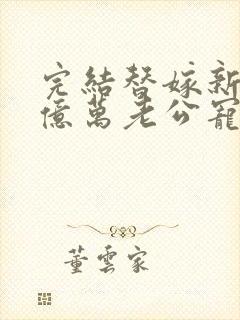 完結替嫁新
億萬老公寵
董雲家